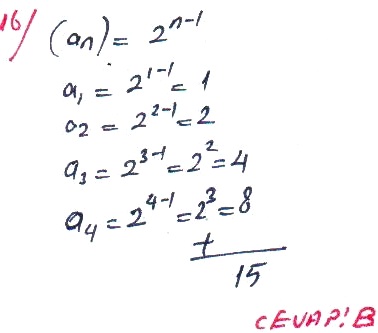 16/ (an) = 2^n-1
a1 = 2^1-1 = 1
a2 = 2^2-1 = 2
a3 = 2^3-1 = 2^2 = 4
a4 = 2^4-1 = 2^3 = 8
+
15
CEVAP: B